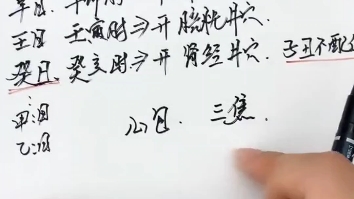 辛日
壬日 壬寅时⇒开膀胱井穴.
癸日、癸亥时⇒开肾经井穴. 子丑不配
甲日
乙日
心包. 三焦.